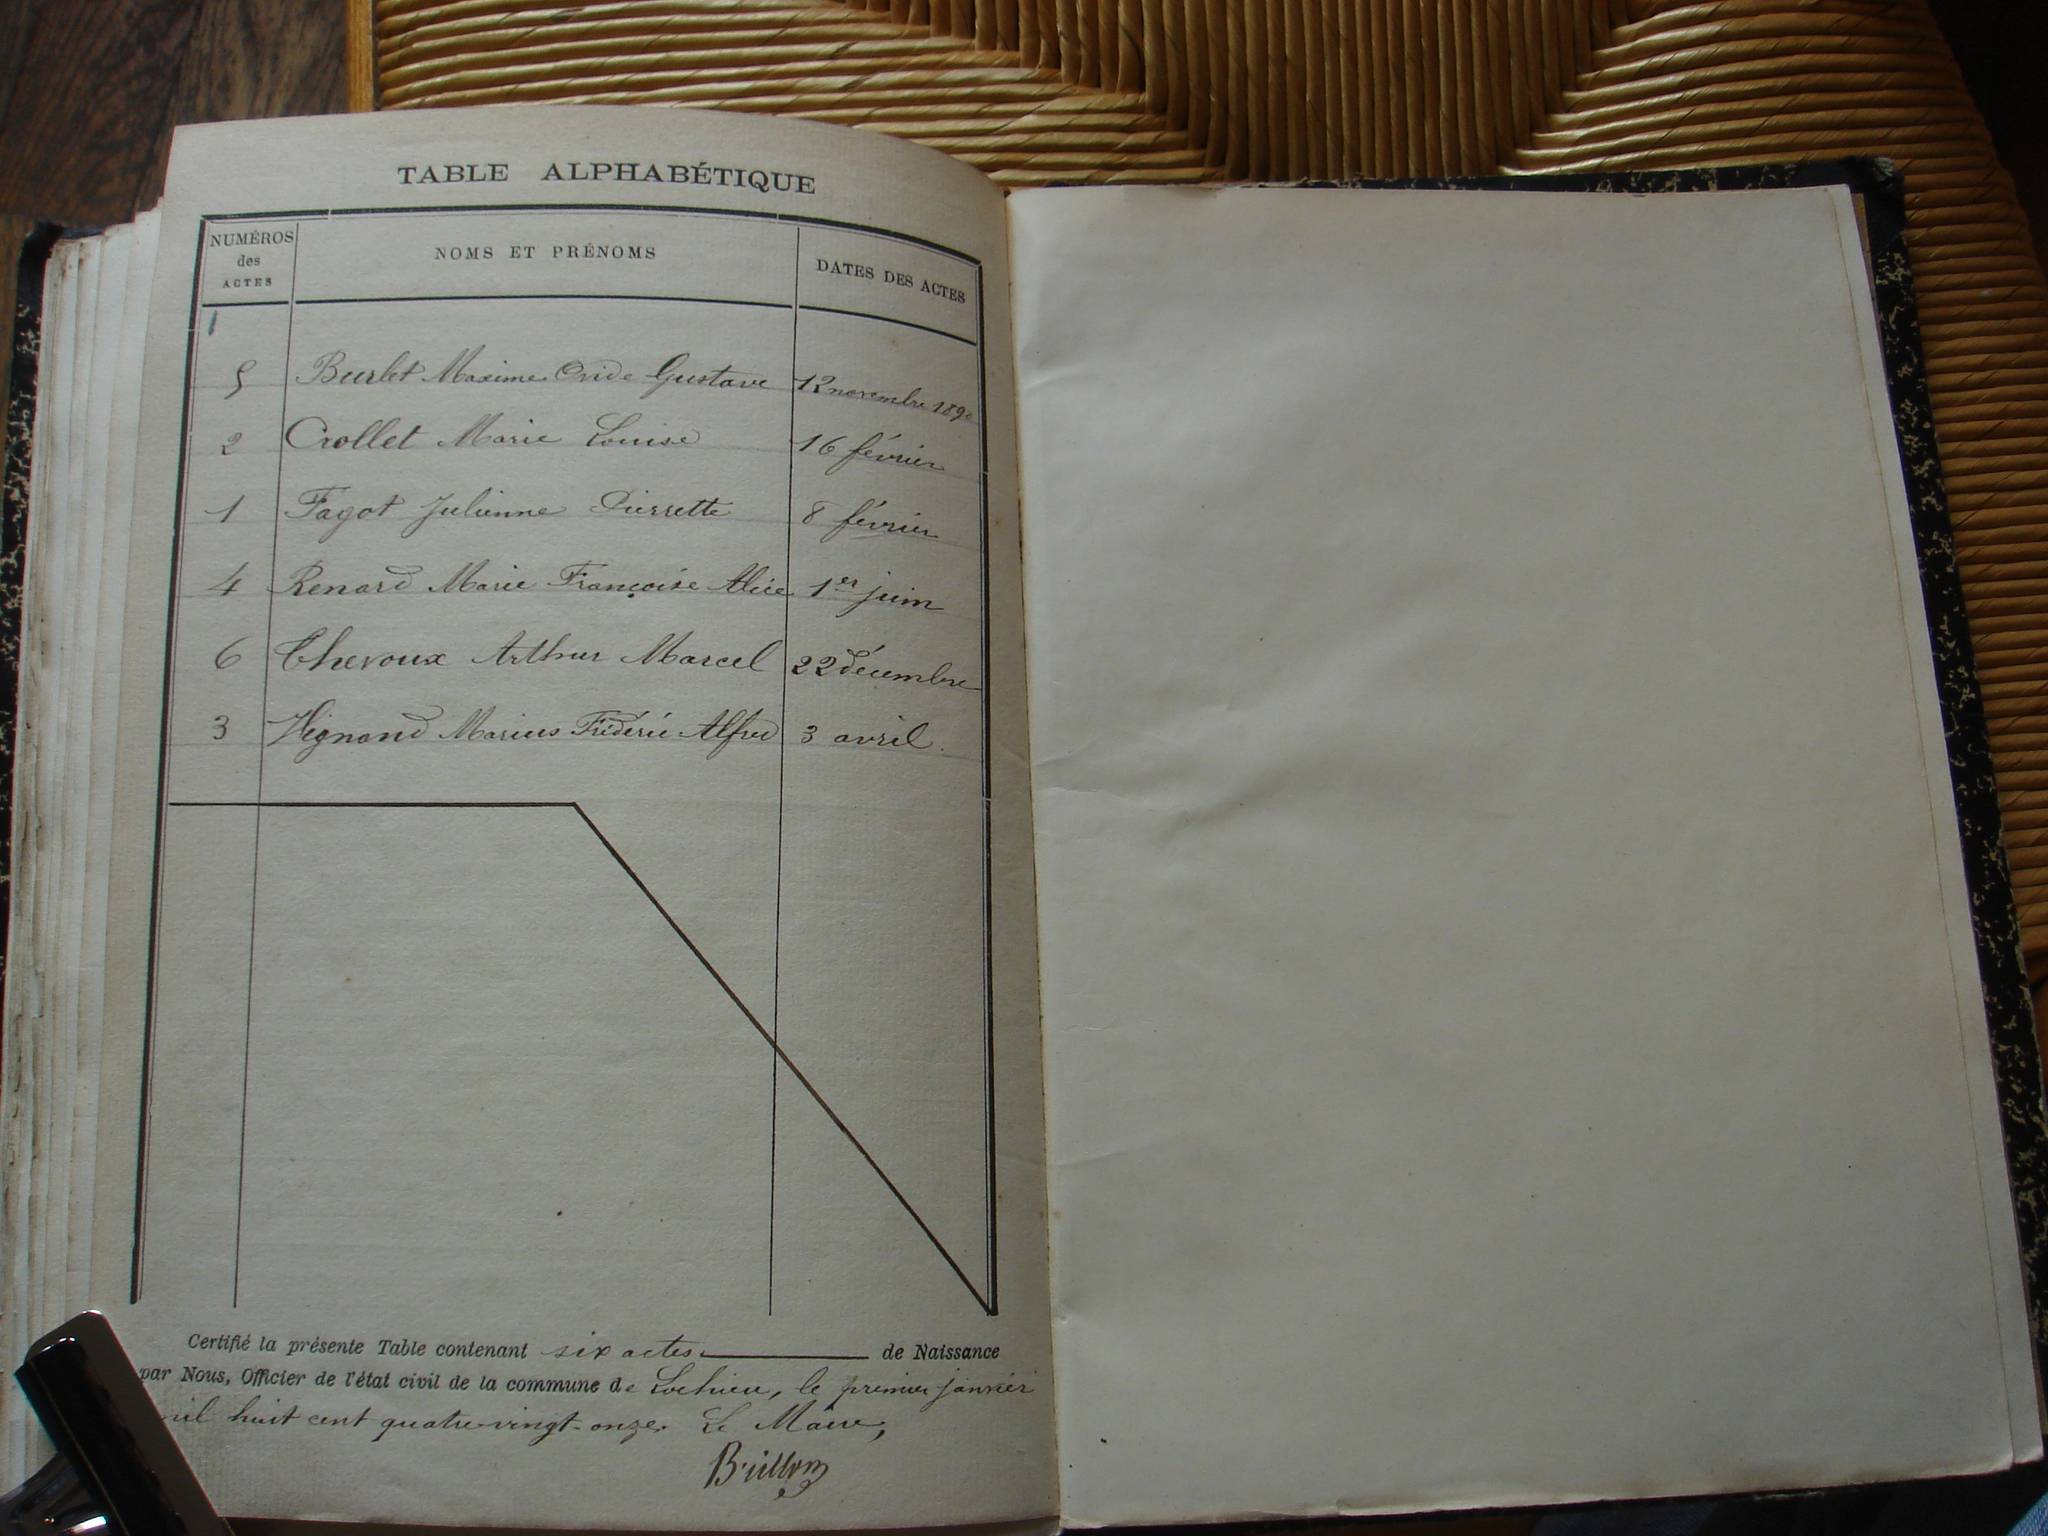 TABLE ALPHABÉTIQUE
NUMÉROS des ACTES NOMS ET PRÉNOMS DATES DES ACTES
1
5 Burlet Maxime Ovide Gustave 12 novembre 1890
2 Crollet Marie Louise 16 février
1 Fagot Julienne Pierrette 8 février
4 Renard Marie Françoise Alice 1er juin
6 Thevoux Arthur Marcel 22 décembre
3 Vignand Marius Frédéric Alfred 3 avril.
Certifié la présente Table contenant six actes de Naissance
par Nous, Officier de l'état civil de la commune de Lochieu, le premier janvier
mil huit cent quatre-vingt-onze. Le Maire,